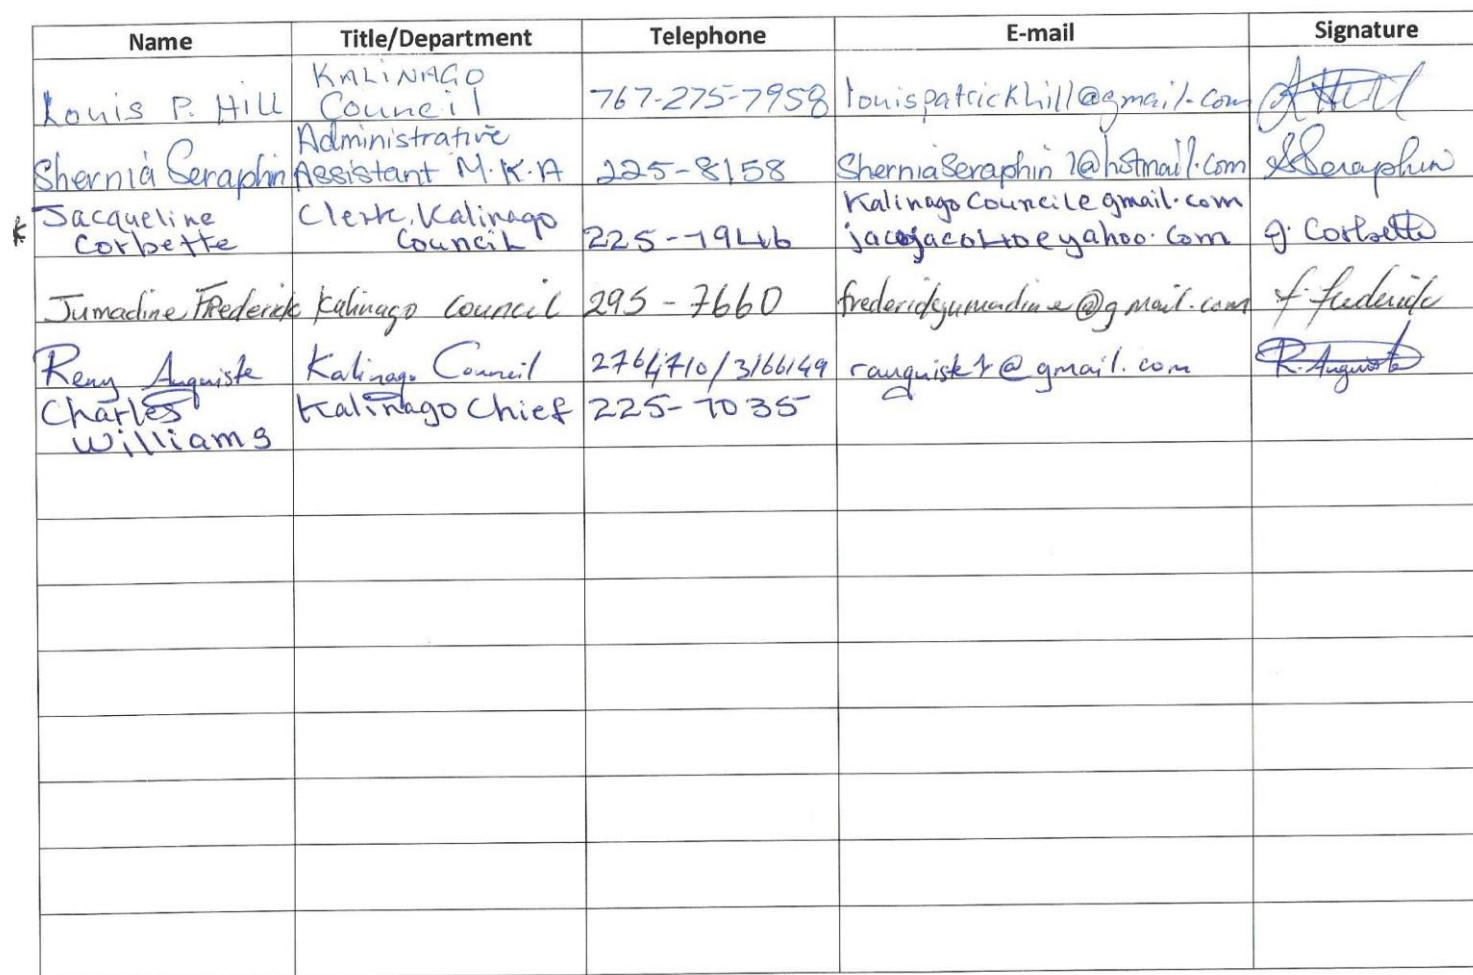 Name Title/Department Telephone E-mail Signature
Louis P. Hill KALINAGO Council 767-275-7958 louispatrickhill@gmail.com
Shernia Seraphin Administrative Assistant M.K.A 225-8158 SherniaSeraphin1@hotmail.com SSeraphin
Jacqueline Corbette Clerk, Kalinago Council 225-7946 Kalinagocouncil@gmail.com J. Corbette
Jumadine Frederick Kalinago Council 295-7660 frederickjumadine@gmail.com J. Frederick
Kalinago Council R. Auguiste
Charles Williams Kalinago Chief 225-7035